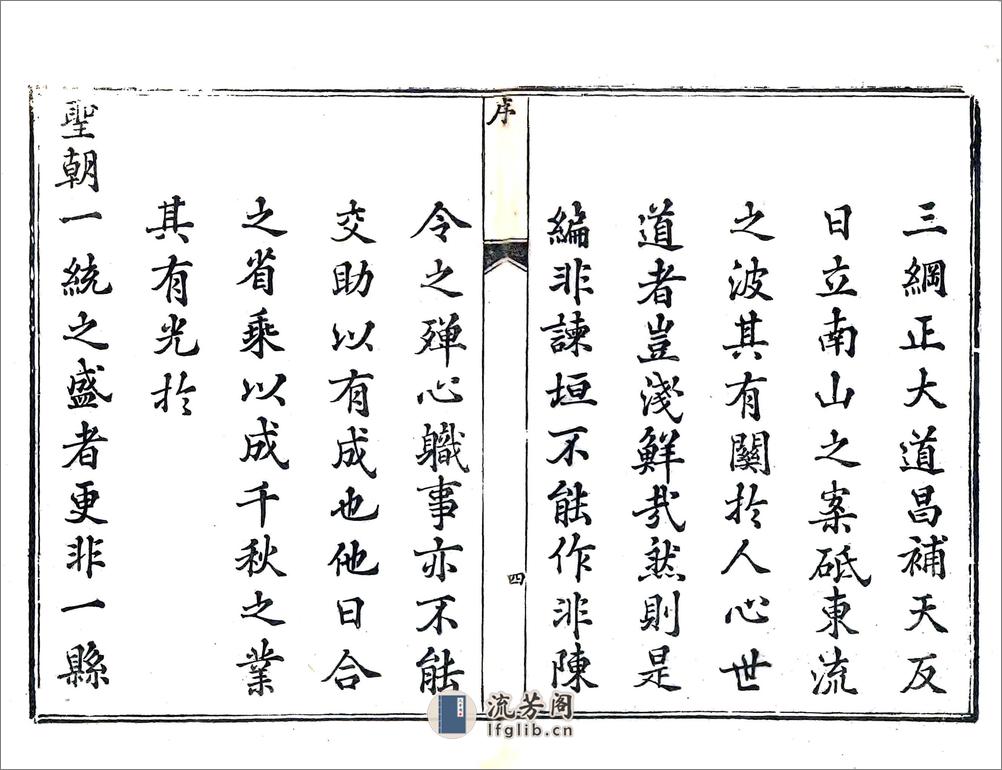 三綱正大道昌補天反
日立南山之案砥東流
之波其有關扵人心世
道者豈淺鮮㢤然則是
編非諫垣不能作非陳
序
四
令之殫心職事亦不能
交助以有成也他日合
之省乘以成千秋之業
其有光扵
聖朝一統之盛者更非一縣
流芳阁
lfglib.cn